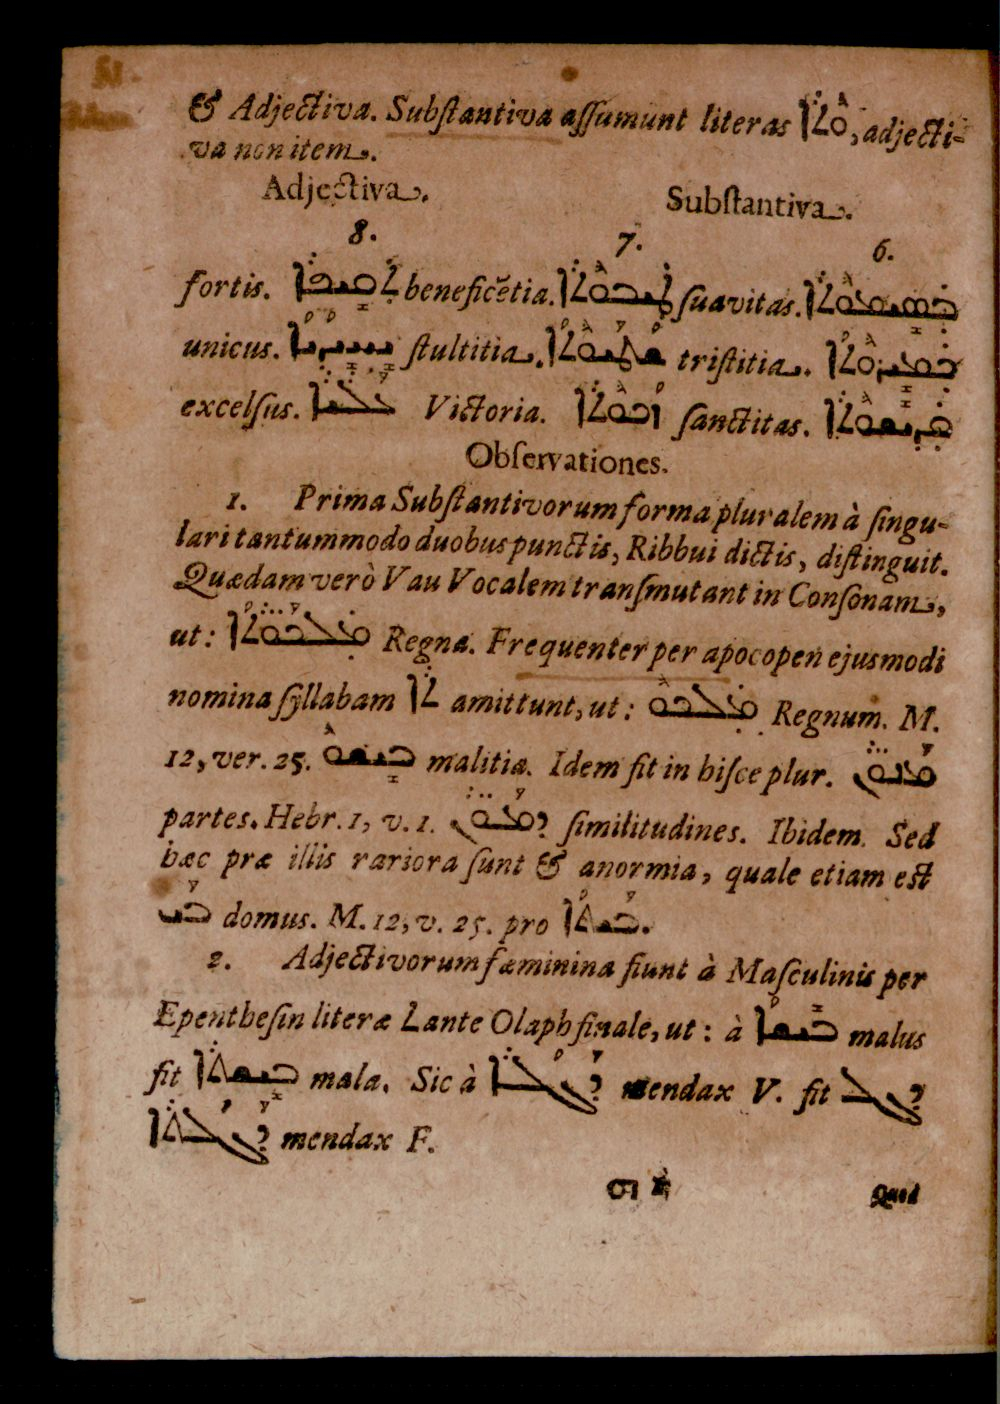 & Adjectiva. Subſtantiva aſſumunt literas ܘܬܐ, adjecti-
va non item.
Adjectiva. Subſtantiva.
8. 7. 6.
fortis. beneficẽtia. ܛܝܒܘܬܐ ſuavitas. ܒܣܝܡܘܬܐ
unicus. ܝܚܝܕܝܐ ſtultitia. ܫܛܝܘܬܐ triſtitia. ܟܡܝܪܘܬܐ
excelſus. Victoria. ܙܟܘܬܐ ſanctitas. ܩܕܝܫܘܬܐ
Obſervationes.
1. Prima Subſtantivorum forma pluralem à ſingu-
lari tantummodo duobus punctis, Ribbui dictis, diſtinguit.
Quædam verò Vau Vocalem tranſmutant in Conſonam,
ut: ܡܠܟܘܬܐ Regna. Frequenter per apocopen ejusmodi
nomina ſyllabam ܬܐ amittunt, ut: ܡܠܟܘ Regnum. M.
12, ver. 25. ܒܝܫܘ malitia. Idem fit in hiſce plur. ܡܢܘܢ
partes. Hebr. 1, v. 1. ܕܡܘܢ ſimilitudines. Ibidem. Sed
hæc præ illis rariora ſunt & anormia, quale etiam eſt
domus. M. 12, v. 25. pro ܒܝܬܐ.
2. Adjectivorum fæminina fiunt à Maſculinis per
Epentheſin literæ ܬ ante Olaph finale, ut: à ܒܝܫܐ malus
fit ܒܝܫܬܐ mala. Sic à ܕܓܠܐ mendax V. fit ܕܓܠ
ܕܓܠܬܐ mendax F.
Quod